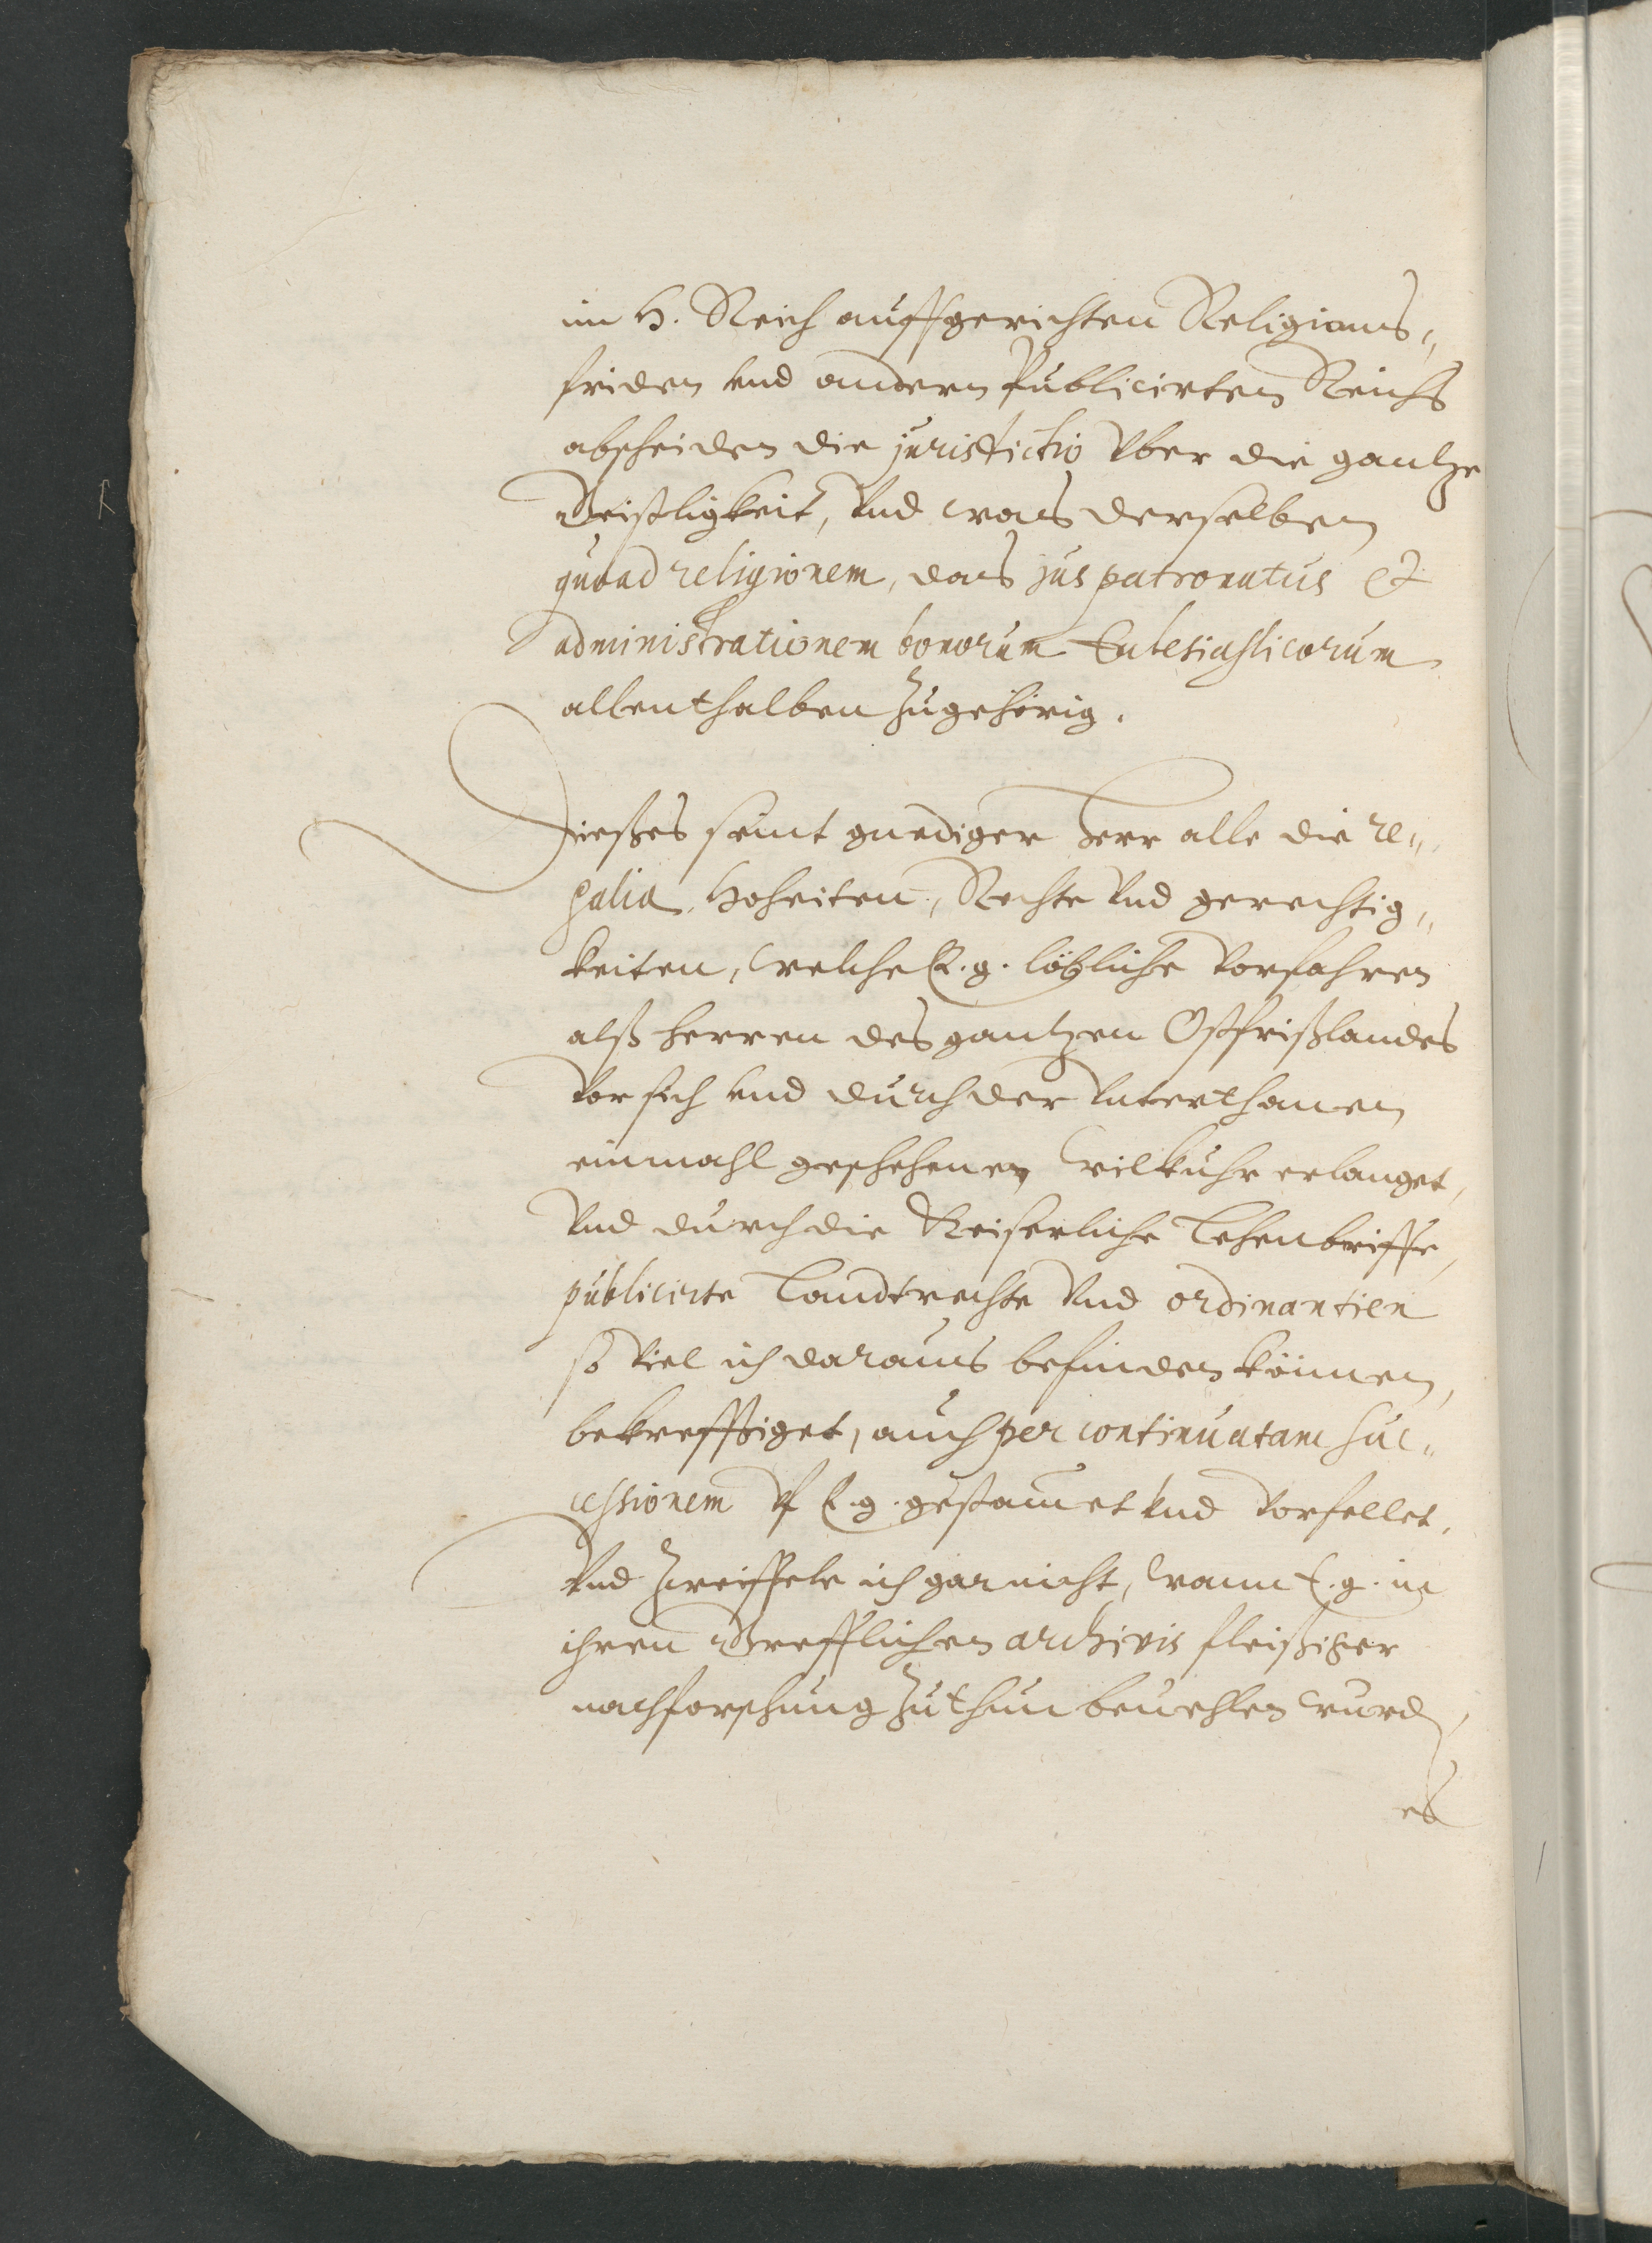 im H. Reich auffgerichten Religions„
friden vnd andern Publicirten Reichs
abscheiden die juristictio vber die gantze
Geistligkeit, vnd was derselben
quoad religionem, das jus patronatus et
administrationem bonorum Eclesiasticorum
allenthalben zugehörig.
Dieses seint gnediger Herr alle die re„
galia, Hoheiten, Rechte vnd gerechtig„
keiten, welche E. g. löbliche vorfahren
alß herren des gantzen Ostfrißlandes
vor sich vnd durch der vnterthanen
einmahl geschehenen wilkuhr erlanget,
vnd durch die Keiserliche Lehenbriffe,
publicirte Landtrechte vnd ordinantien
so viel ich daraus befinden können,
bekrefftiget, auch per continuatam suc„
cessionem vf E. g. gestammet vnd vorfellet.
vnd zweiffele ich gar nicht, wann E. g. in
ihren Grefflichen archivis fleißiger
nachforschung zuthun beuehlen wurd,
es